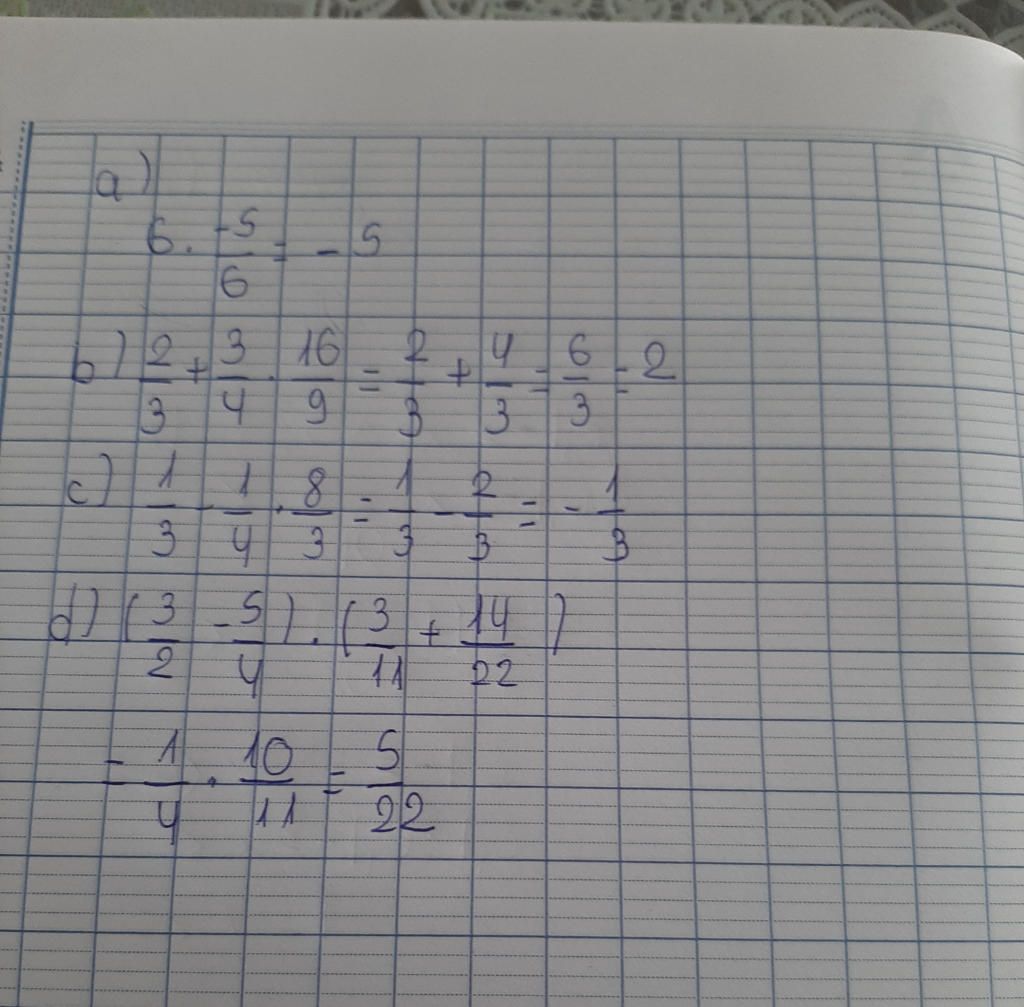 a)
6 . -5/6 = - 5
b) 2/3 + 3/4 . 16/9 = 2/3 + 4/3 = 6/3 = 2
c) 1/3 - 1/4 . 8/3 = 1/3 - 2/3 = - 1/3
d) (3/2 - 5/4) . (3/11 + 14/22)
= 1/4 . 10/11 = 5/22